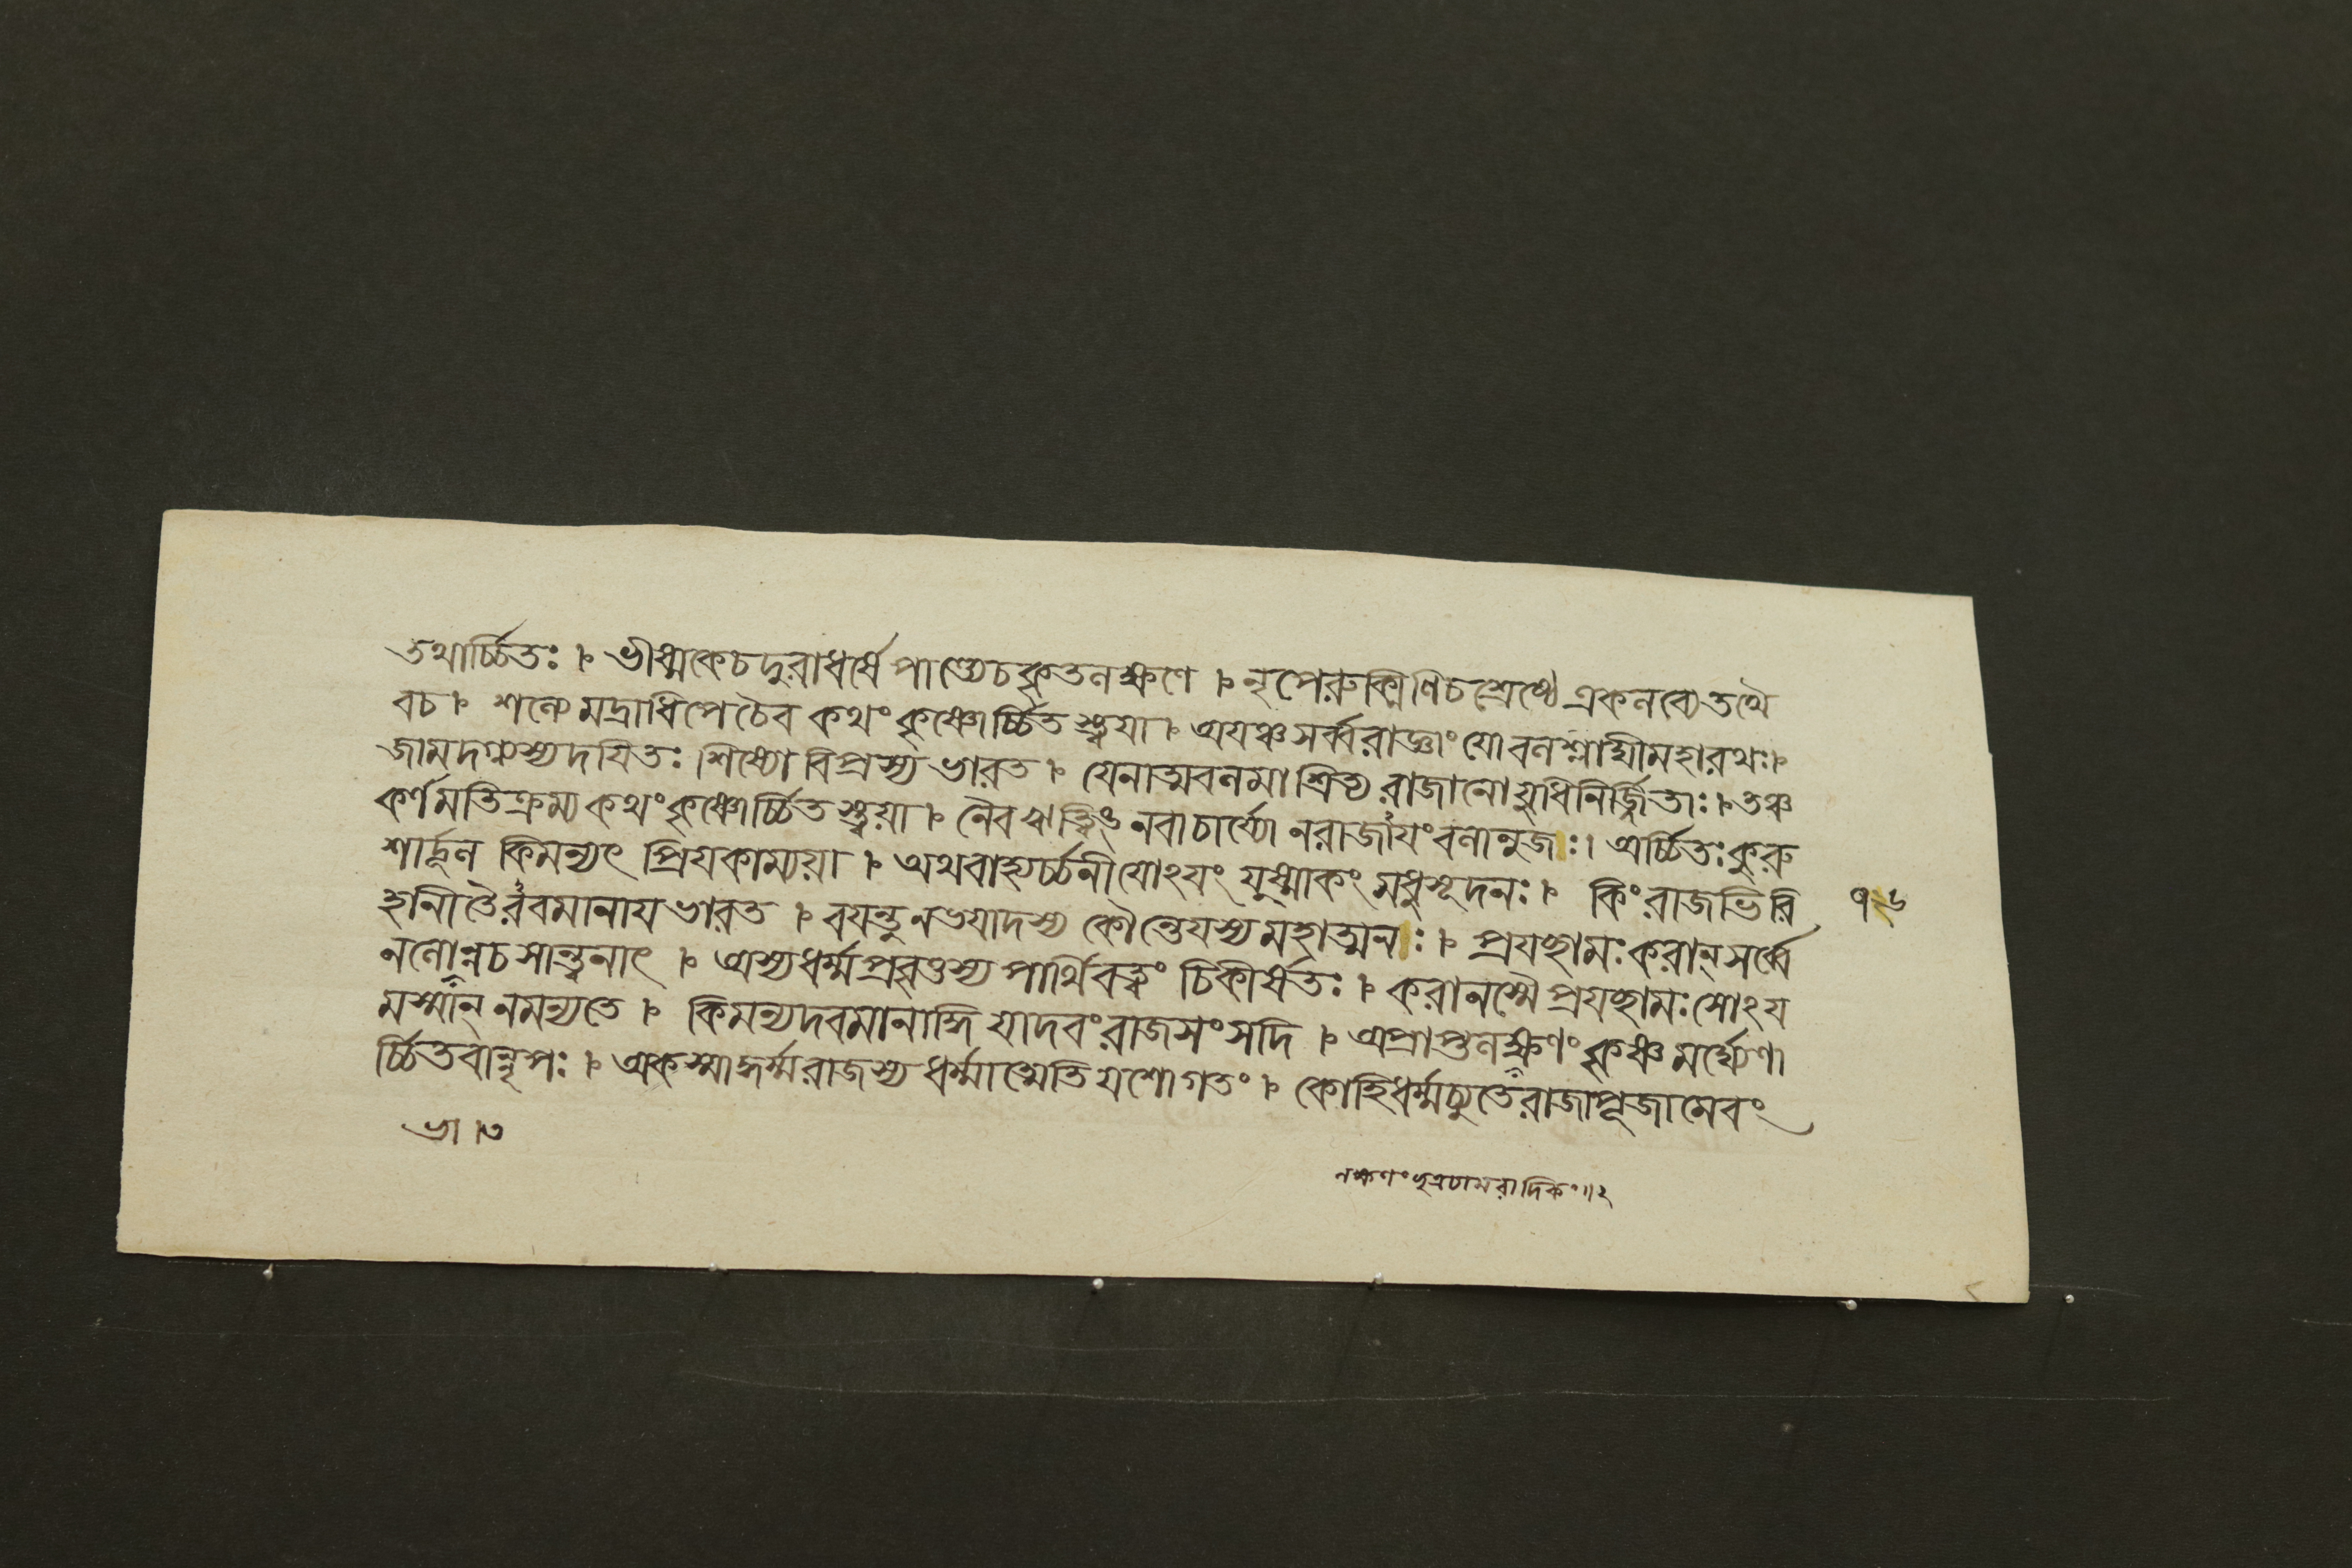 তথার্চ্চিতঃ । ভীষ্মকেচদুরাধর্ষে পাণ্ড্যেচকৃতলক্ষণে । নৃপেরুক্মিণিচশ্রেষ্ঠে একলব্যেতথৈ
বচ । শল্যে মদ্রাধিপে চৈব কথংকৃষ্ণোর্চ্চিতস্ত্বয়া । অযঞ্চসর্ব্বরাজ্ঞাং যো বলশ্লাঘীমহারথঃ।
জামদগ্ন্যস্যদযিতঃ শিষ্যো বিপ্রস্য ভারত । যেনাত্মবলমাশ্রিত্য রাজানো যুধিনির্জ্জিতাঃ । তঞ্চ
কর্ণমতিক্রম্য কথংকৃষ্ণোর্চ্চিতস্ত্বয়া । নৈব ঋত্বিঙ্ নবাচার্য্যো নরাজাযংবলানুজঃ। অর্চ্চিতঃকুরু
শার্দ্দূল কিমন্যৎ প্রিযকাম্যয়া । অথবাহ্যর্চ্চনীযোঽযং যুষ্মাকং মধুসূদনঃ । কিংরাজভিরি
হানীতৈরবমানায ভারত । বযন্তুনভযাদস্য কৌন্তেযস্যমহাত্মনঃ । প্রযচ্ছামঃকরান্ সর্ব্বে
নলোভান্নচ সান্ত্বনাৎ । অস্যধর্ম্মপ্রবৃত্তস্য পার্থিবত্বং চিকীর্ষতঃ । করানস্মৈ প্রযচ্ছামঃসোঽয
মস্মান্ নমন্যতে । কিমন্যদবমানাদ্ধি যাদবংরাজসংসদি । অপ্রাপ্তলক্ষণং কৃষ্ণমর্ঘ্যেণা
র্চ্চিতবান্নৃপঃ । অকস্মাদ্ধর্ম্মরাজস্য ধর্ম্মাত্মেতি যশোগতং । কোহিধর্ম্মচ্যুতেরাজাপূজামেবং
১২৬
ভা ।৩
লক্ষণংছত্রচামরাদিকং॥২